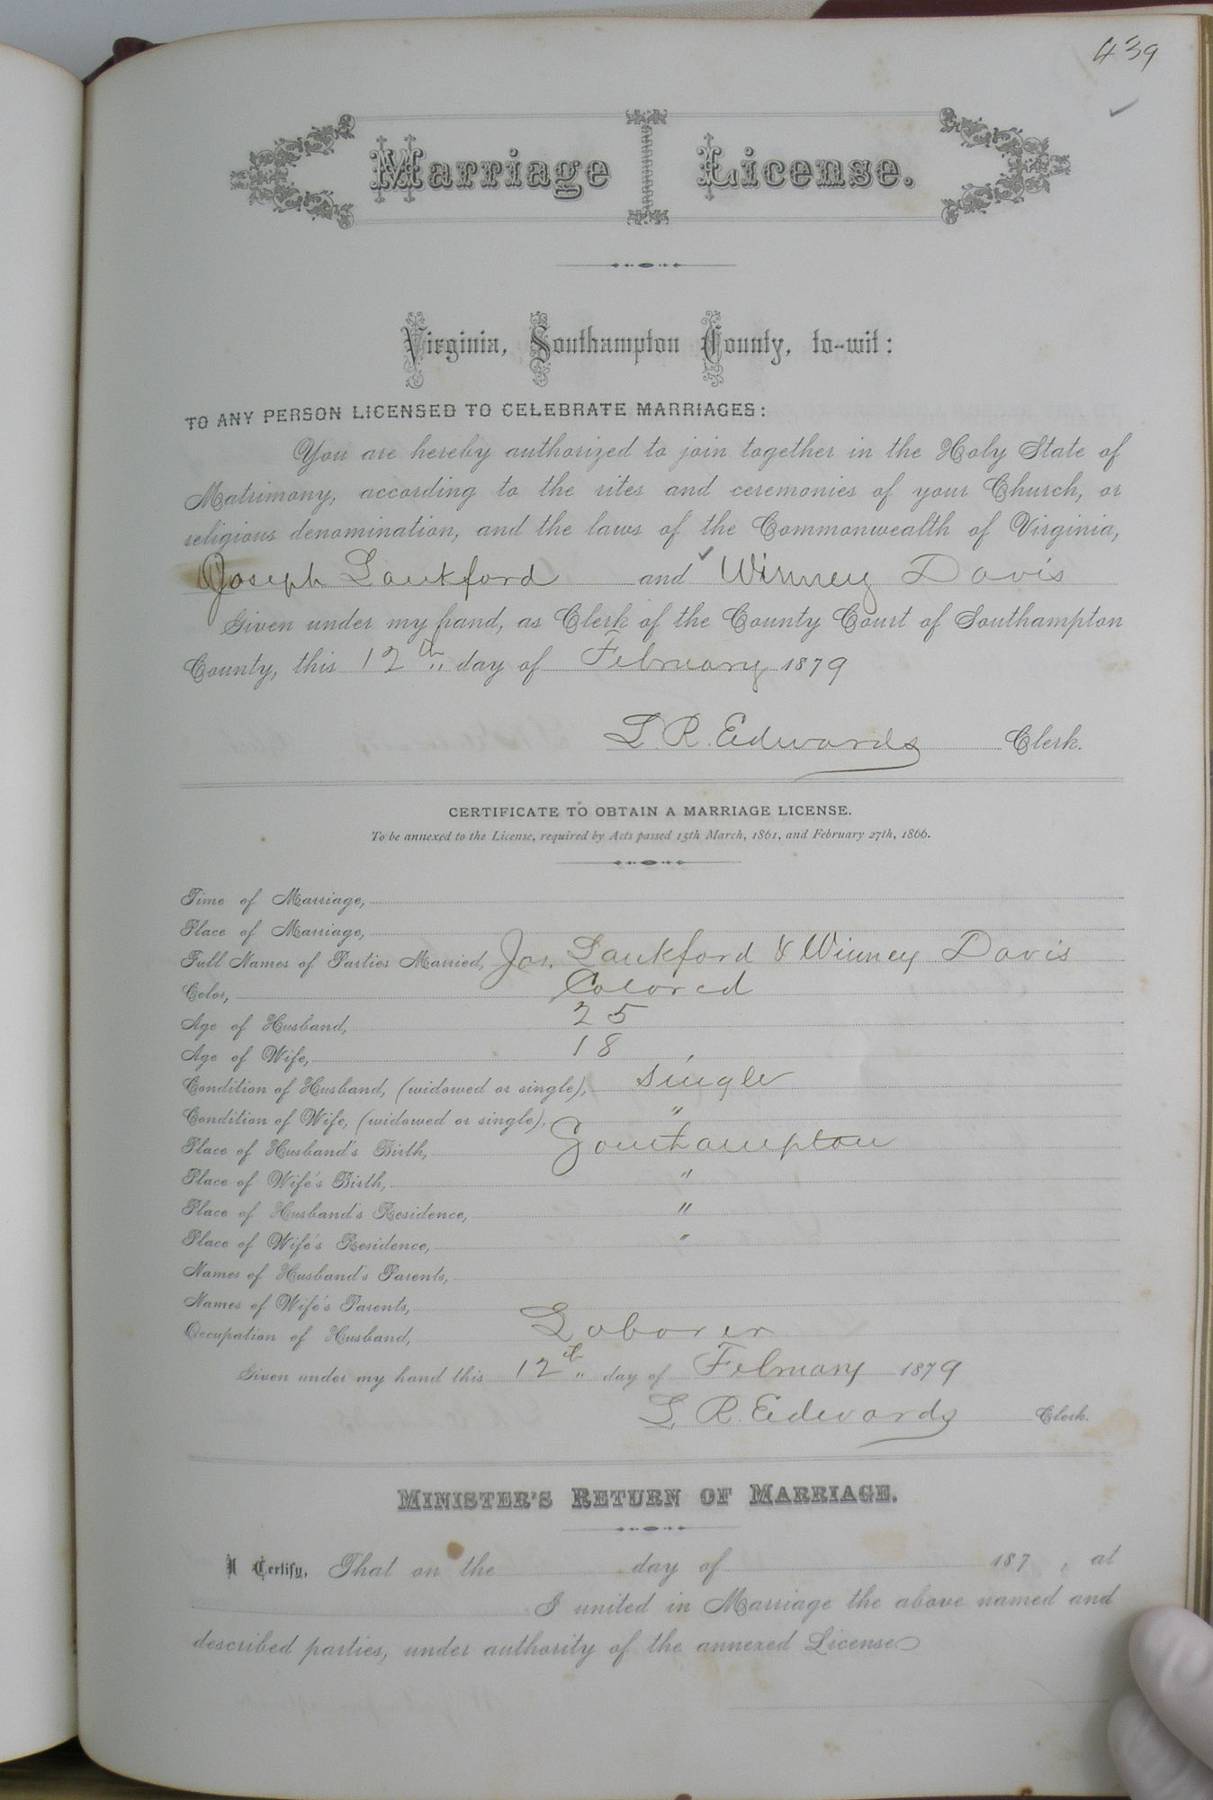 439
Marriage License.
Virginia, Southampton County, to-wit:
TO ANY PERSON LICENSED TO CELEBRATE MARRIAGES:
You are hereby authorized to join together in the Holy State of
Matrimony, according to the rites and ceremonies of your Church, or
religious denomination, and the laws of the Commonwealth of Virginia,
Joseph Lankford and Winney Davis
Given under my hand, as Clerk of the County Court of Southampton
County, this 12th day of February 1879
L. R. Edwards Clerk.
CERTIFICATE TO OBTAIN A MARRIAGE LICENSE.
To be annexed to the License, required by Acts passed 15th March, 1861, and February 27th, 1866.
Time of Marriage,
Place of Marriage,
Full Names of Parties Married, Jos. Lankford & Winney Davis
Color, Colored
Age of Husband, 25
Age of Wife, 18
Condition of Husband, (widowed or single), Single
Condition of Wife, (widowed or single), "
Place of Husband's Birth, Southampton
Place of Wife's Birth, "
Place of Husband's Residence, "
Place of Wife's Residence, "
Names of Husband's Parents,
Names of Wife's Parents,
Occupation of Husband, Laborer
Given under my hand this 12th day of February 1879
L R. Edwards Clerk.
MINISTER'S RETURN OF MARRIAGE.
I Certify, That on the day of 187 , at
I united in Marriage the above named and
described parties, under authority of the annexed License